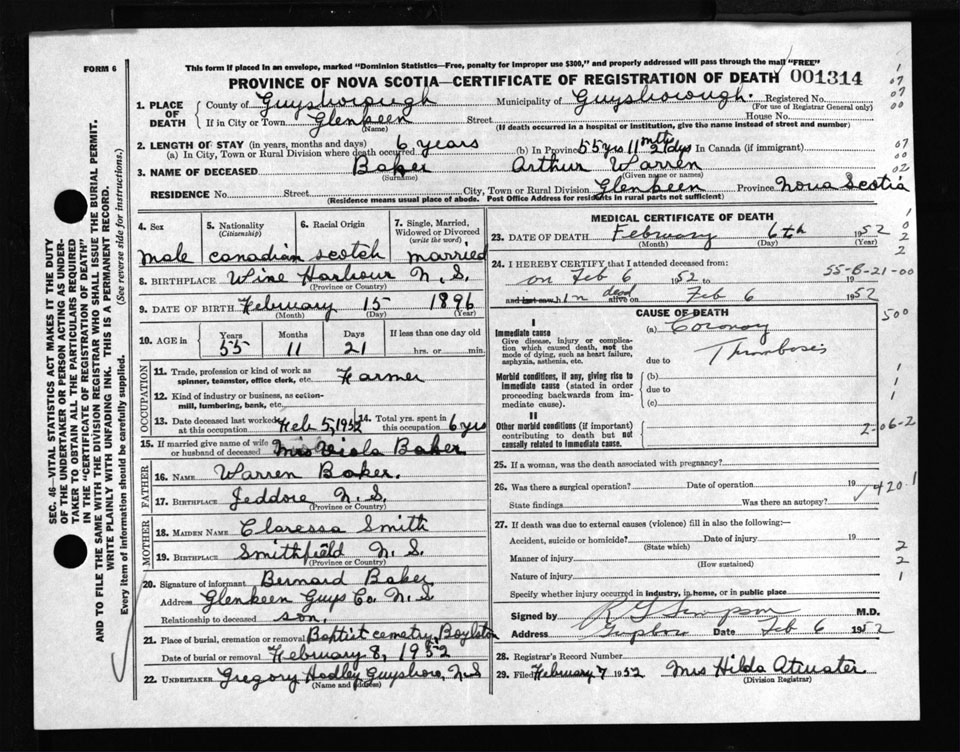 FORM 6
This form if placed in an envelope, marked "Dominion Statistics—Free, penalty for improper use $300," and properly addressed will pass through the mail "FREE"
PROVINCE OF NOVA SCOTIA—CERTIFICATE OF REGISTRATION OF DEATH 001314
1. PLACE OF DEATH
County of Guysborough Municipality of Guysborough. Registered No.
(For use of Registrar General only)
If in City or Town Glenkeen Street House No.
(Name) (If death occurred in a hospital or institution, give the name instead of street and number)
2. LENGTH OF STAY (in years, months and days)
(a) In City, Town or Rural Division where death occurred 6 years (b) In Province 55 yrs 11 mths 21 dys In Canada (if immigrant)
3. NAME OF DECEASED Baker Arthur Warren
(Surname) (Given name or names)
RESIDENCE No. Street City, Town or Rural Division Glenkeen Province Nova Scotia
(Residence means usual place of abode. Post Office Address for residents in rural parts not sufficient)
4. Sex 5. Nationality (Citizenship) 6. Racial Origin 7. Single, Married, Widowed or Divorced (write the word)
male canadian scotch married
8. BIRTHPLACE Wine Harbour N.S.
(Province or Country)
9. DATE OF BIRTH February 15 1896
(Month) (Day) (Year)
10. AGE in Years Months Days If less than one day old
55 11 21 hrs. or min.
OCCUPATION
11. Trade, profession or kind of work as spinner, teamster, office clerk, etc. Farmer
12. Kind of industry or business, as cotton-mill, lumbering, bank, etc.
13. Date deceased last worked at this occupation Feb 5, 1952 14. Total yrs. spent in this occupation 6 yrs
15. If married give name of wife or husband of deceased Mrs Viola Baker
FATHER
16. NAME Warren Baker.
17. BIRTHPLACE Jeddore N.S.
(Province or Country)
MOTHER
18. MAIDEN NAME Claressa Smith
19. BIRTHPLACE Smithfield N.S.
(Province or Country)
20. Signature of informant Bernard Baker
Address Glenkeen Guys Co. N.S.
Relationship to deceased son.
21. Place of burial, cremation or removal Baptist cemetry, Boylston
Date of burial or removal February 8, 1952
22. UNDERTAKER Gregory Hadley Guysboro, N.S
(Name and address)
MEDICAL CERTIFICATE OF DEATH
23. DATE OF DEATH February 6th 1952
(Month) (Day) (Year)
24. I HEREBY CERTIFY that I attended deceased from:
55-B-21-00
on Feb 6 1952 to 19
and last saw h im dead alive on Feb 6 1952
CAUSE OF DEATH
I
Immediate cause
Give disease, injury or complication which caused death, not the mode of dying, such as heart failure, asphyxia, asthenia, etc.
(a) Coronary
due to Thrombosis
Morbid conditions, if any, giving rise to immediate cause (stated in order proceeding backwards from immediate cause).
(b)
due to
(c)
II
Other morbid conditions (if important) contributing to death but not causally related to immediate cause.
500
2-06-2
25. If a woman, was the death associated with pregnancy?
26. Was there a surgical operation? Date of operation 19
420.1
State findings Was there an autopsy?
27. If death was due to external causes (violence) fill in also the following:—
Accident, suicide or homicide? Date of injury 19
(State which)
Manner of injury
(How sustained)
Nature of injury
Specify whether injury occurred in industry, in home, or in public place
Signed by R G Simpson M.D.
Address Guysboro Date Feb 6 1952
28. Registrar's Record Number
29. Filed February 7 1952 Mrs Hilda Atwater
(Division Registrar)
SEC. 46—VITAL STATISTICS ACT MAKES IT THE DUTY
OF THE UNDERTAKER OR PERSON ACTING AS UNDER-
TAKER TO OBTAIN ALL THE PARTICULARS REQUIRED
IN THE "CERTIFICATE OF REGISTRATION OF DEATH"
AND TO FILE THE SAME WITH THE DIVISION REGISTRAR WHO SHALL ISSUE THE BURIAL PERMIT.
WRITE PLAINLY WITH UNFADING INK. THIS IS A PERMANENT RECORD.
Every item of information should be carefully supplied. (See reverse side for instructions.)